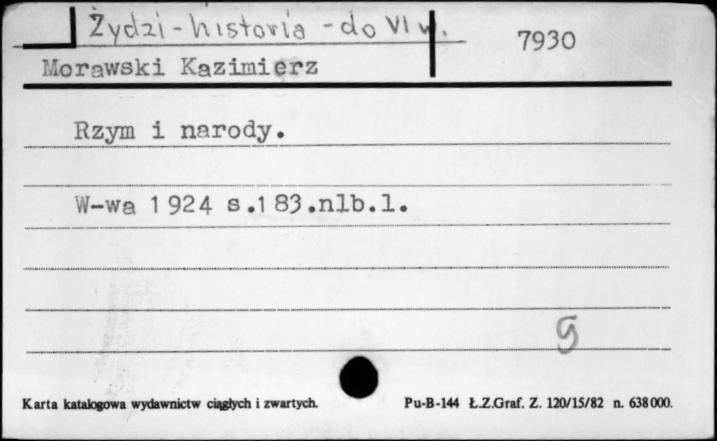 Żydzi - historia - do VI w.
7930
Morawski Kazimierz
Rzym i narody.
W-wa 1924 s.183.nlb.1.
Karta katalogowa wydawnictw ciągłych i zwartych.
Pu-B-144 Ł.Z.Graf. Z. 120/15/82 n. 638000.